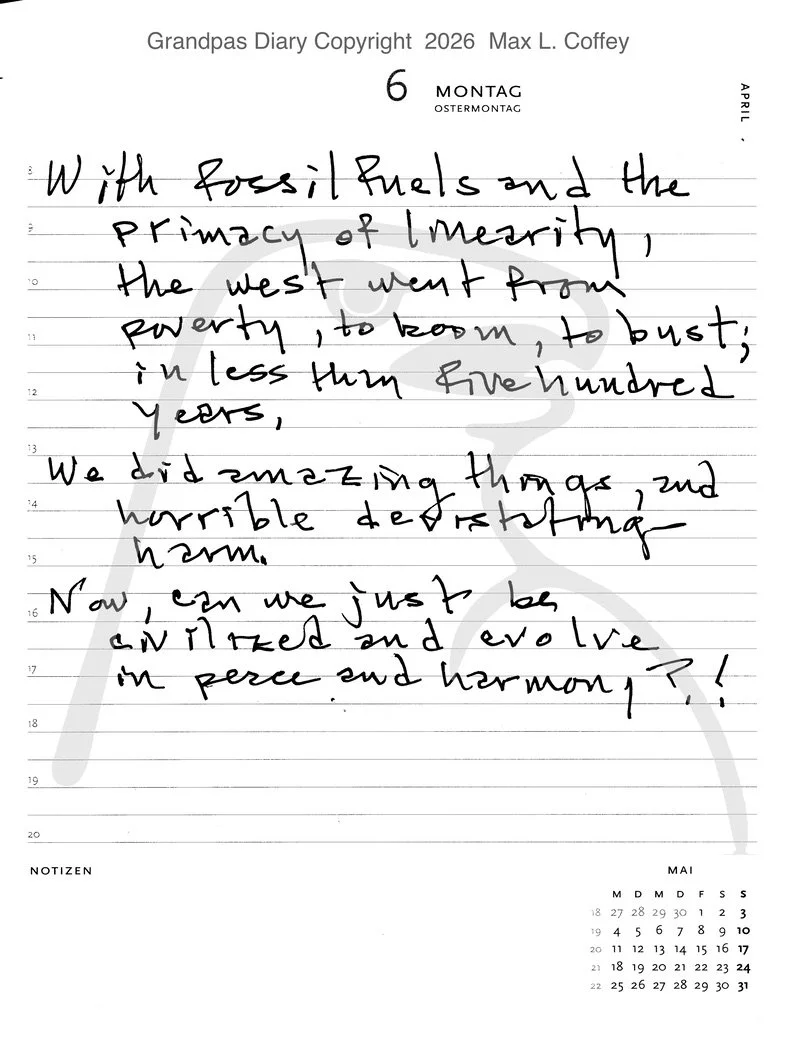 Grandpas Diary Copyright 2026 Max L. Coffey
6 MONTAG
OSTERMONTAG
APRIL
8 With fossil fuels and the
9 primacy of linearity,
10 the west went from
11 poverty, to boom, to bust;
in less than five hundred
12 years,
13 We did amazing things, and
14 horrible devistating
15 harm.
16 Now, can we just be
civilized and evolve
17 in peace and harmony?!
18
19
20
NOTIZEN
MAI
M D M D F S S
18 27 28 29 30 1 2 3
19 4 5 6 7 8 9 10
20 11 12 13 14 15 16 17
21 18 19 20 21 22 23 24
22 25 26 27 28 29 30 31